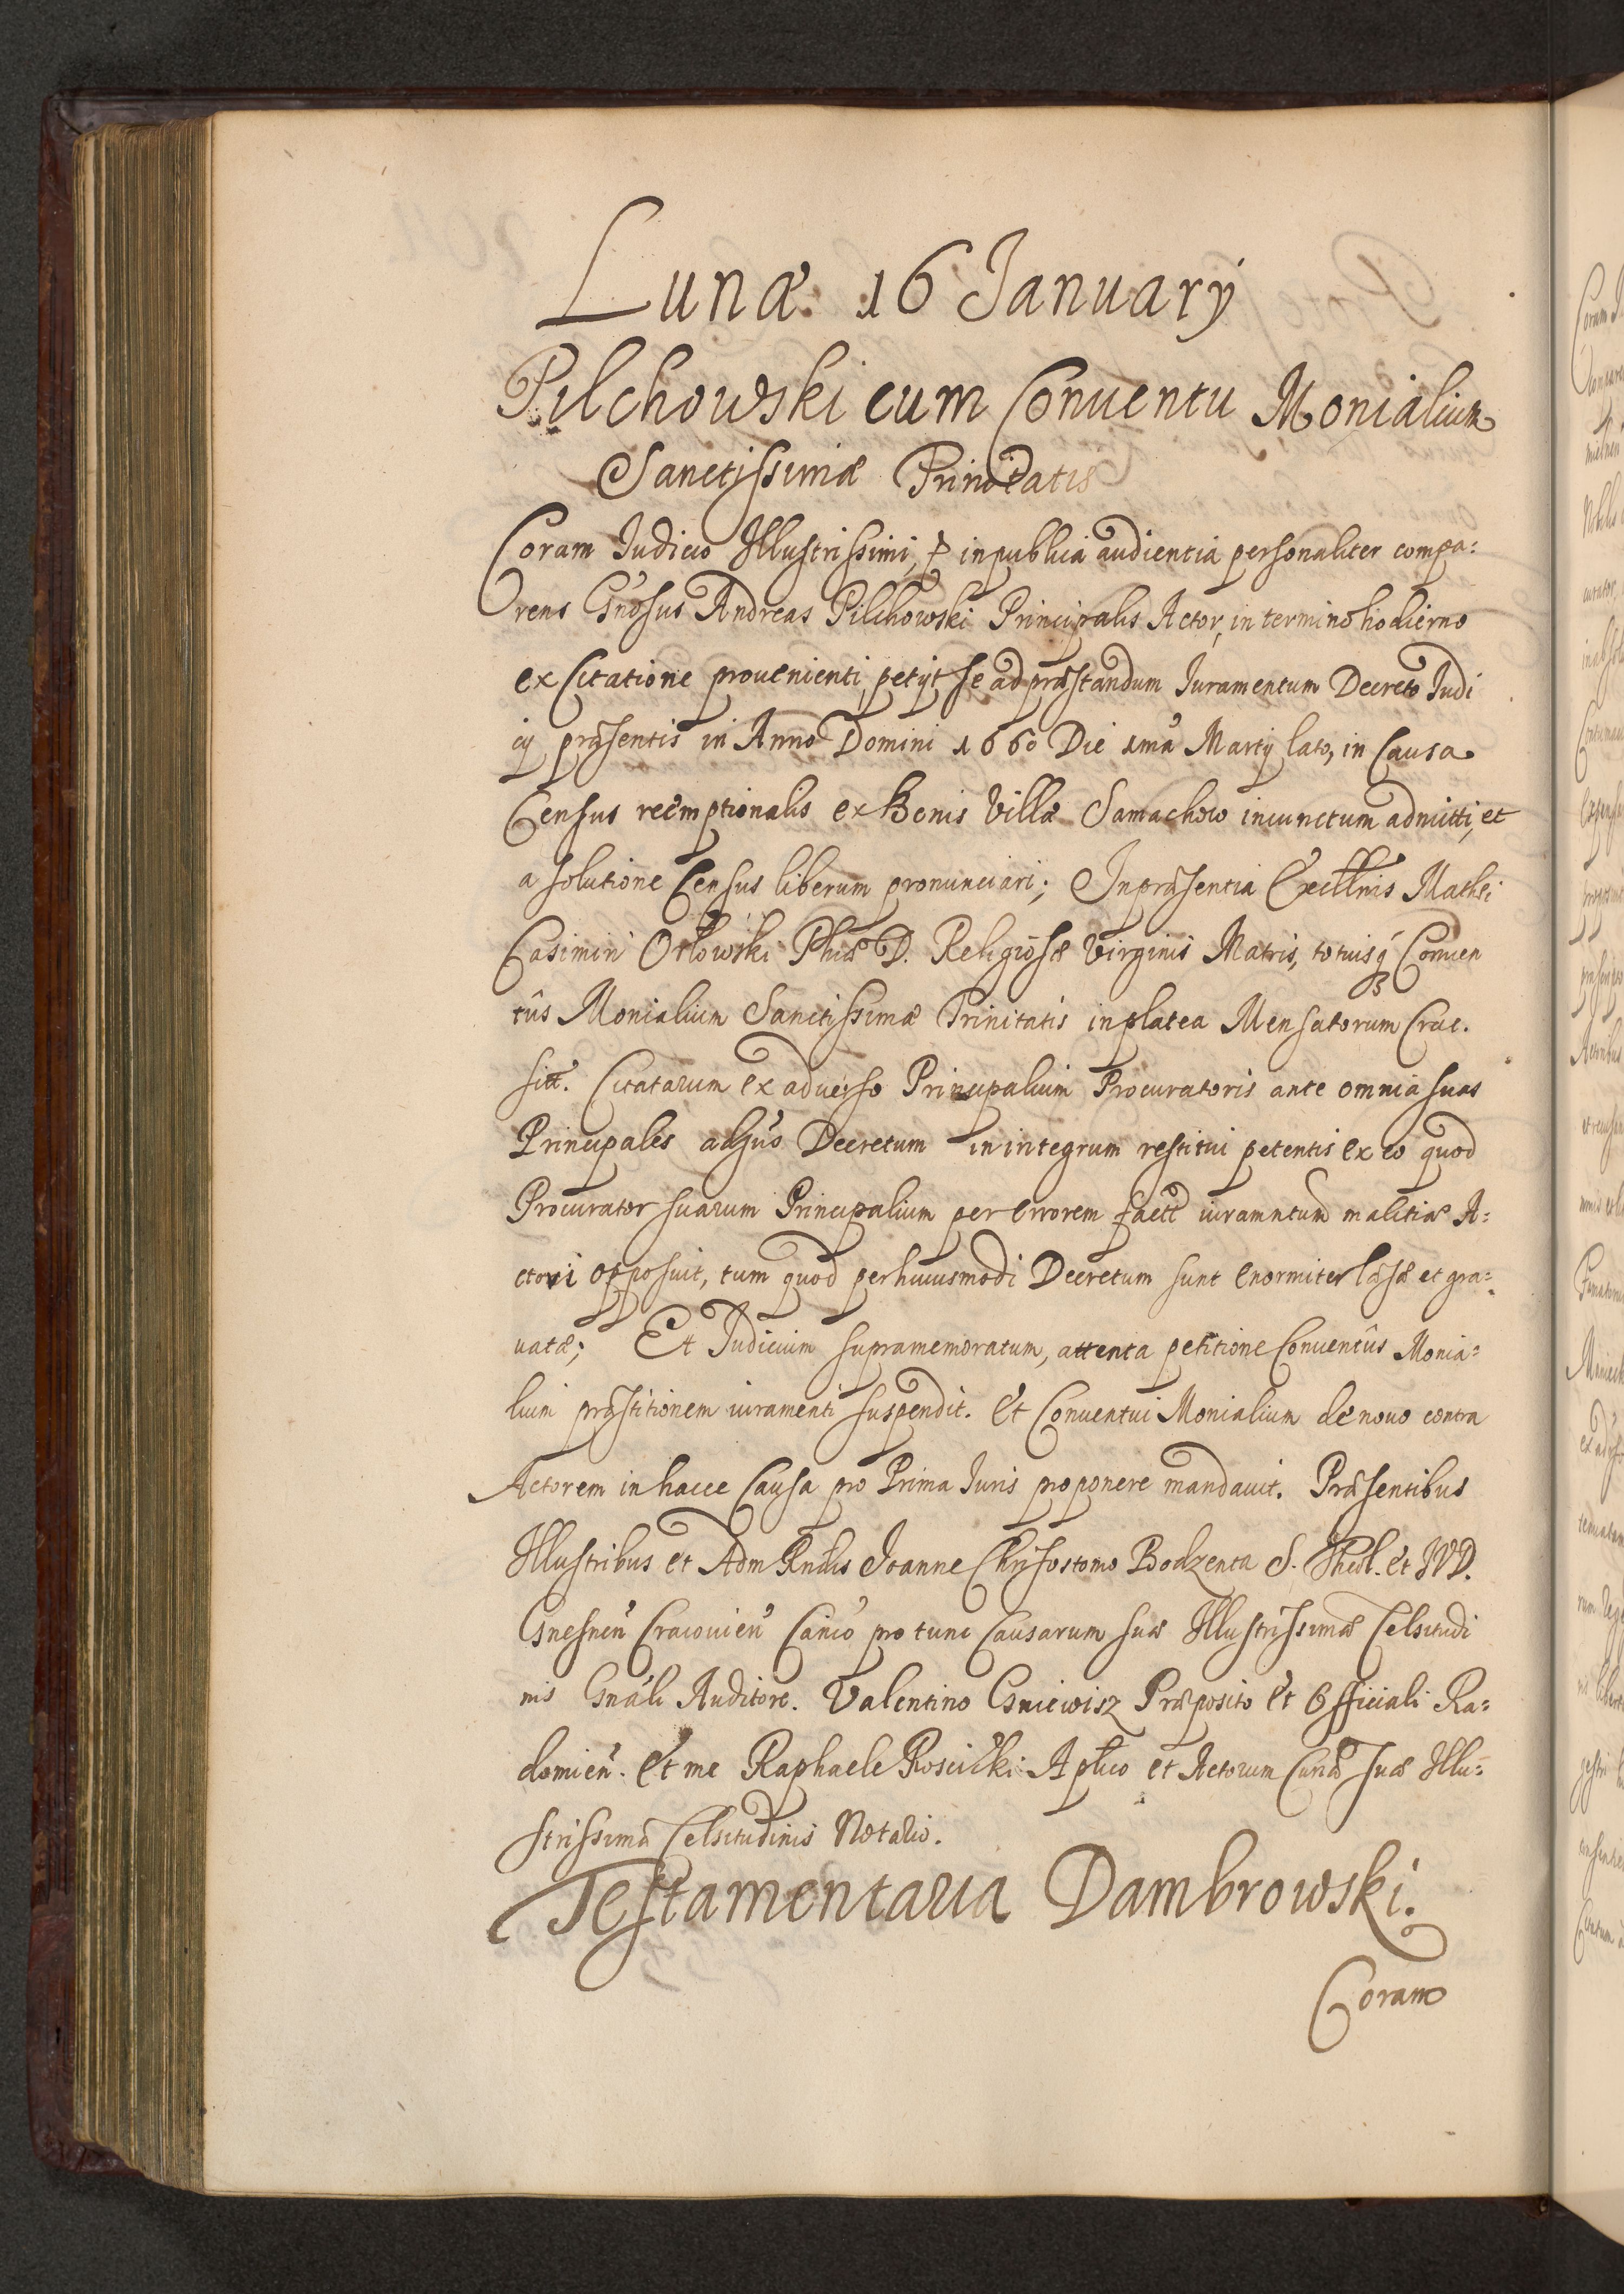 Lunæ 16 January
Pilchowski cum Conuentu Monialium
Sanctissimæ Trinitatis
Coram Judicio Illustrissimi, in publica audientia personaliter compa:
rens Gnosus Andreas Pilchowski Principalis Actor, in termino hodierno
ex Citatione prouenienti petijt se ad præstandum Juramentum Decreto Judi
cij præsentis in Anno Domini 1660 Die 1mâ Martij lato, in Causa
Census reemptionalis ex Bonis Villæ Samachow iniunctum admitti, et
a solutione Census liberum pronunciari; In præsentia Excellmis Mathei
Casimiri Orłowski Phiæ D. Religiosæ Virginis Matris, totiusq Conuen
tûs Monialium Sanctissimæ Trinitatis in platea Mensatorum Crac.
sitt. Citatarum ex aduerso Principalium Procuratoris ante omnia suas
Principales aduersus Decretum in integrum restitui petentis ex eo quod
Procurator suarum Principalium per errorem facti iuramntum malitiæ A:
ctori opposuit, tum quod per huiusmodi Decretum sunt enormiter læsæ et gra:
uatæ; Et Judicium supramemoratum, attenta petitione Conuentûs Monia:
lium præstitionem iuramenti suspendit. Et Conuentui Monialium de nouo contra
Actorem in hacce Causa pro Prima Juris proponere mandauit. Præsentibus
Illustribus et Adm Rndis Joanne Chrisostomo Bodzenta S. Theol. et JVD.
Gnesnen Cracouien Canco pro tunc Causarum suæ Illustrissimæ Celsitudi
nis Gnali Auditore. Valentino Gniewisz Præposito et Officiali Ra:
domien. Et me Raphaele Roscicki Aplico et Actorum Curiæ suæ Illu:
strissimæ Celsitudinis Notario.
Testamentaria Dambrowski.
Coram